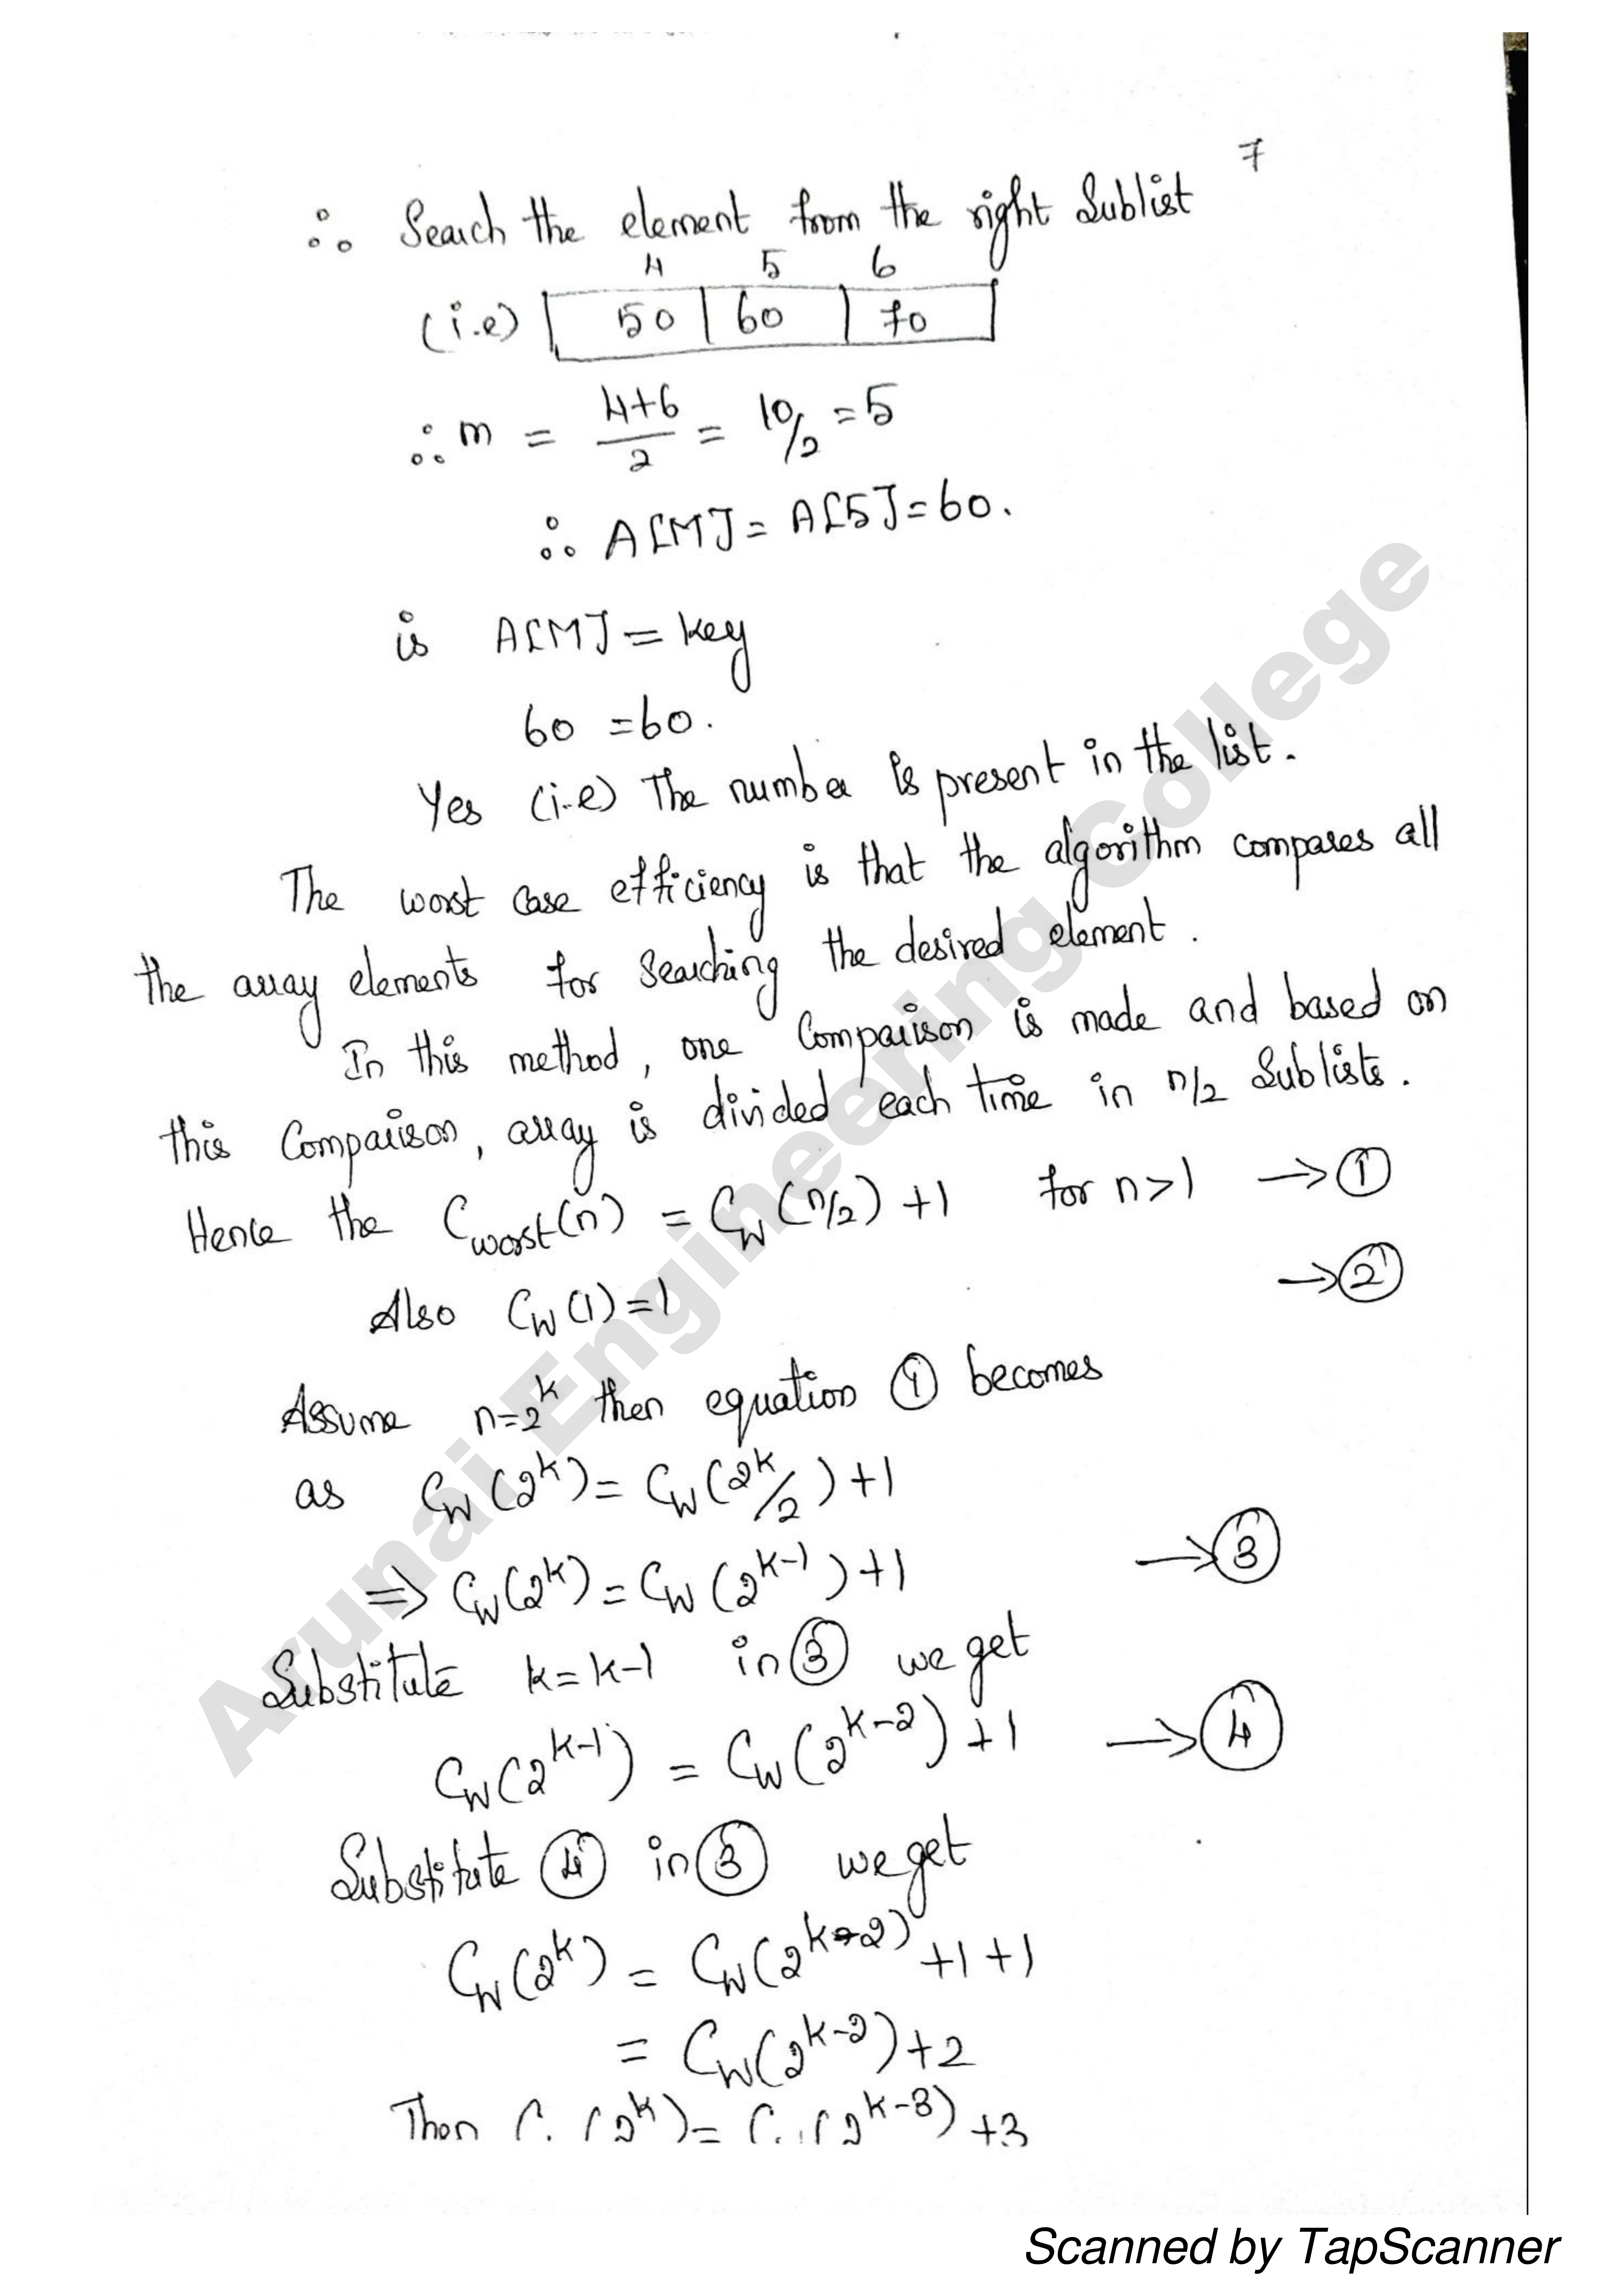 7
∴ Search the element from the right Sublist
4 5 6
(i.e) 50 60 70
∴ m = 4+6/2 = 10/2 = 5
∴ A[M] = A[5] = 60.
is A[M] = key
60 = 60.
Yes (i.e) The number is present in the list.
The worst case efficiency is that the algorithm compares all
the array elements for searching the desired element.
In this method, one Comparison is made and based on
this Comparison, array is divided each time in n/2 Sublists.
Hence the Cworst(n) = Cw(n/2) + 1 for n>1 → ①
Also Cw(1) = 1 → ②
Assume n=2^k then equation ① becomes
as Cw(2^k) = Cw(2^k/2) + 1
⇒ Cw(2^k) = Cw(2^k-1) + 1 → ③
Substitute k = k-1 in ③ we get
Cw(2^k-1) = Cw(2^k-2) + 1 → ④
Substitute ④ in ③ we get
Cw(2^k) = Cw(2^k-2) + 1 + 1
= Cw(2^k-2) + 2
Then Cw(2^k) = Cw(2^k-3) + 3
Arunai Engineering College
Scanned by TapScanner